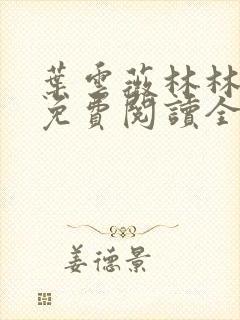 葉雲薇林林
免費閱讀全
姜德景